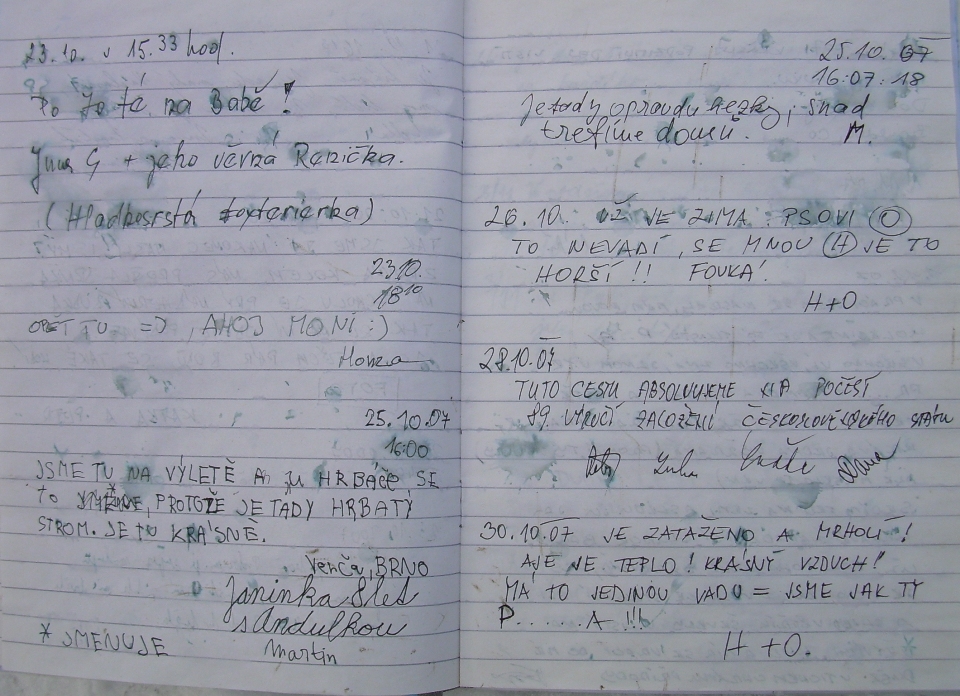 23.10. v 15.33 hod.
Po 70 té na Babě!
G + jeho věrná Renička.
(Hladkosrstá foxterierka)
23.10.
18 10
OPĚT TU =), AHOJ MONI :)
Honza
25.10.07
16:00
JSME TU NA VÝLETĚ A ZU HRBÁČE SE
to PROTOŽE JE TADY HRBATÝ
STROM. JE TU KRÁSNĚ.
Venča, BRNO
Janinka 8let
s Andulkou
* JMENUJE Martin
25.10.07
16:07:18
Je tady opravdu hezky, snad
trefíme domů. M.
26.10. UŽ JE ZIMA. PSOVI (O)
TO NEVADÍ, SE MNOU (H) JE TO
HORŠÍ!! FOUKÁ!
H+O
28.10.07
TUTO CESTU ABSOLVUJEME NA POČEST
89. VÝROČÍ ZALOŽENÍ ČESKOSLOVENSKÉHO STÁTU
Dana
30.10.07 JE ZATAŽENO A MRHOLÍ!
ALE JE TEPLO! KRÁSNÝ VZDUCH!
MÁ TO JEDINOU VADU = JSME JAK TY
P.....A!!!
H+O.